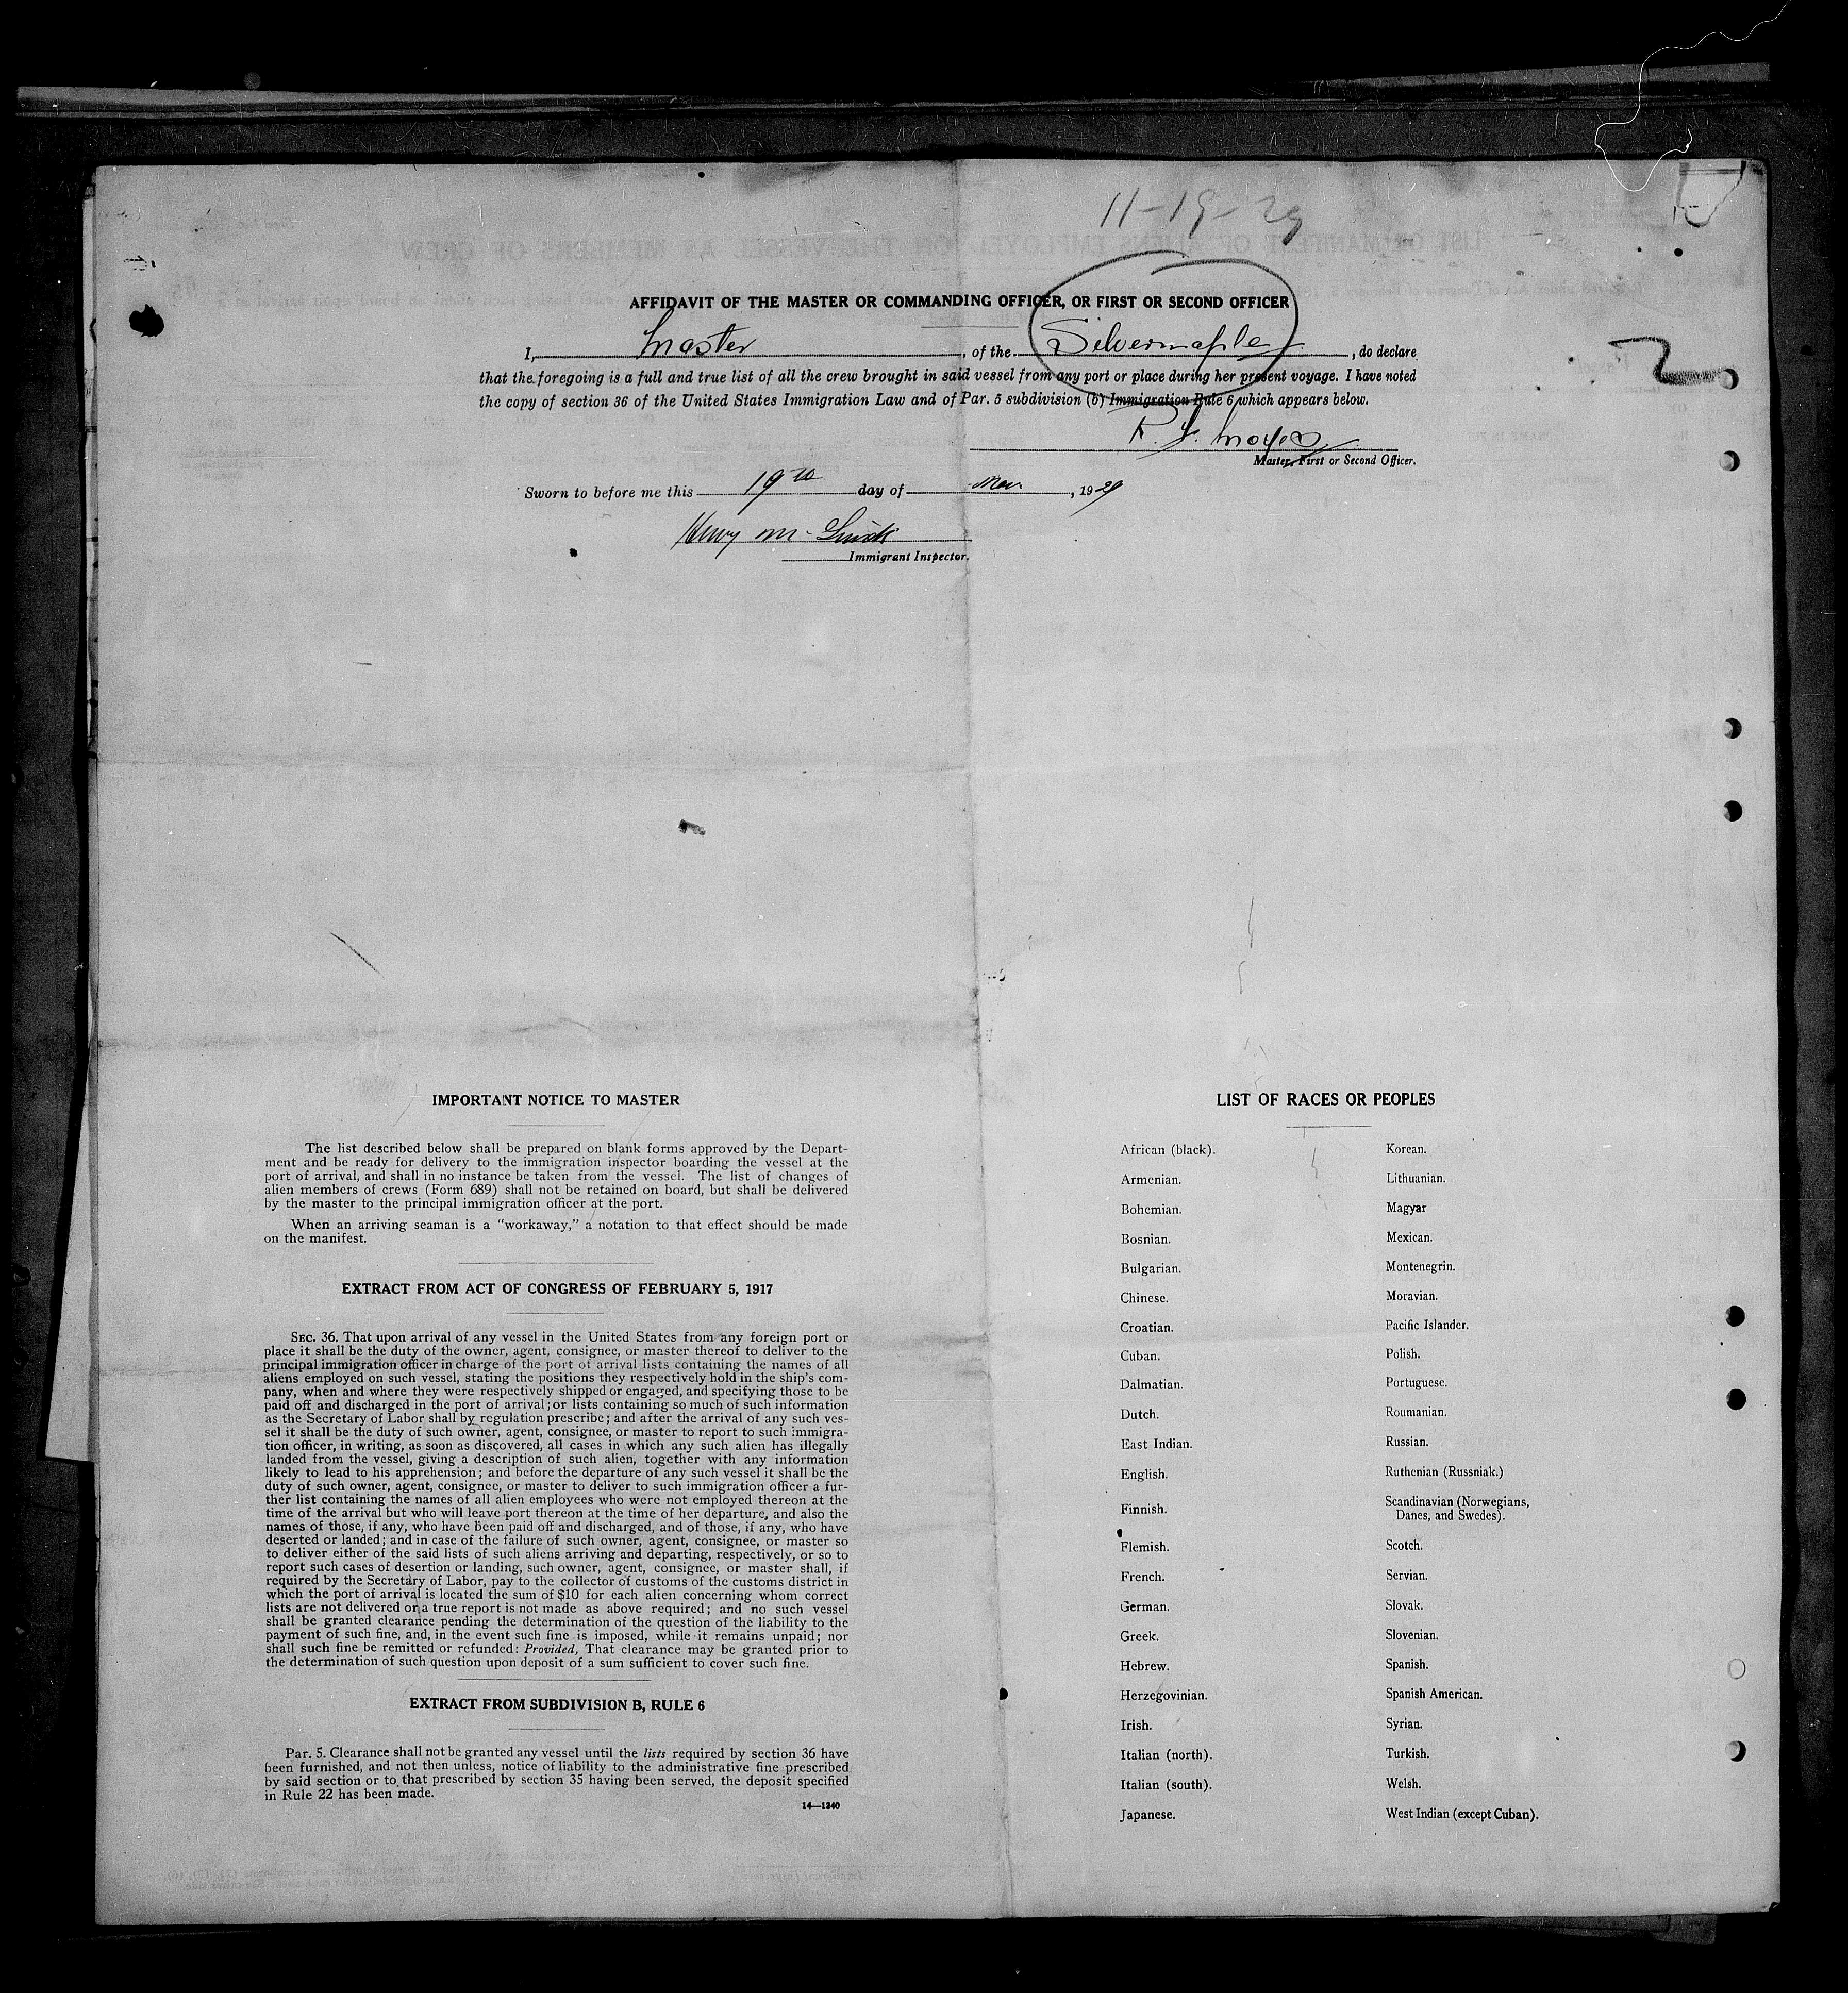 11-19-29
AFFIDAVIT OF THE MASTER OR COMMANDING OFFICER, OR FIRST OR SECOND OFFICER
I, Master, of the Silvermaple, do declare
that the foregoing is a full and true list of all the crew brought in said vessel from any port or place during her present voyage. I have noted
the copy of section 36 of the United States Immigration Law and of Par. 5 subdivision (b) Immigration Rule 6 which appears below.
Master, First or Second Officer.
Sworn to before me this 19th day of Nov, 1929
Henry
Immigrant Inspector.
2
IMPORTANT NOTICE TO MASTER
The list described below shall be prepared on blank forms approved by the Depart-
ment and be ready for delivery to the immigration inspector boarding the vessel at the
port of arrival, and shall in no instance be taken from the vessel. The list of changes of
alien members of crews (Form 689) shall not be retained on board, but shall be delivered
by the master to the principal immigration officer at the port.
When an arriving seaman is a "workaway," a notation to that effect should be made
on the manifest.
EXTRACT FROM ACT OF CONGRESS OF FEBRUARY 5, 1917
SEC. 36. That upon arrival of any vessel in the United States from any foreign port or
place it shall be the duty of the owner, agent, consignee, or master thereof to deliver to the
principal immigration officer in charge of the port of arrival lists containing the names of all
aliens employed on such vessel, stating the positions they respectively hold in the ship's com-
pany, when and where they were respectively shipped or engaged, and specifying those to be
paid off and discharged in the port of arrival; or lists containing so much of such information
as the Secretary of Labor shall by regulation prescribe; and after the arrival of any such ves-
sel it shall be the duty of such owner, agent, consignee, or master to report to such immigra-
tion officer, in writing, as soon as discovered, all cases in which any such alien has illegally
landed from the vessel, giving a description of such alien, together with any information
likely to lead to his apprehension; and before the departure of any such vessel it shall be the
duty of such owner, agent, consignee, or master to deliver to such immigration officer a fur-
ther list containing the names of all alien employees who were not employed thereon at the
time of the arrival but who will leave port thereon at the time of her departure, and also the
names of those, if any, who have been paid off and discharged, and of those, if any, who have
deserted or landed; and in case of the failure of such owner, agent, consignee, or master so
to deliver either of the said lists of such aliens arriving and departing, respectively, or so to
report such cases of desertion or landing, such owner, agent, consignee, or master shall, if
required by the Secretary of Labor, pay to the collector of customs of the customs district in
which the port of arrival is located the sum of $10 for each alien concerning whom correct
lists are not delivered or a true report is not made as above required; and no such vessel
shall be granted clearance pending the determination of the question of the liability to the
payment of such fine, and, in the event such fine is imposed, while it remains unpaid; nor
shall such fine be remitted or refunded: Provided, That clearance may be granted prior to
the determination of such question upon deposit of a sum sufficient to cover such fine.
EXTRACT FROM SUBDIVISION B, RULE 6
Par. 5. Clearance shall not be granted any vessel until the lists required by section 36 have
been furnished, and not then unless, notice of liability to the administrative fine prescribed
by said section or to that prescribed by section 35 having been served, the deposit specified
in Rule 22 has been made.
14—1240
LIST OF RACES OR PEOPLES
African (black).
Armenian.
Bohemian.
Bosnian.
Bulgarian.
Chinese.
Croatian.
Cuban.
Dalmatian.
Dutch.
East Indian.
English.
Finnish.
Flemish.
French.
German.
Greek.
Hebrew.
Herzegovinian.
Irish.
Italian (north).
Italian (south).
Japanese.
Korean.
Lithuanian.
Magyar
Mexican.
Montenegrin.
Moravian.
Pacific Islander.
Polish.
Portuguese.
Roumanian.
Russian.
Ruthenian (Russniak.)
Scandinavian (Norwegians,
Danes, and Swedes).
Scotch.
Servian.
Slovak.
Slovenian.
Spanish.
Spanish American.
Syrian.
Turkish.
Welsh.
West Indian (except Cuban).